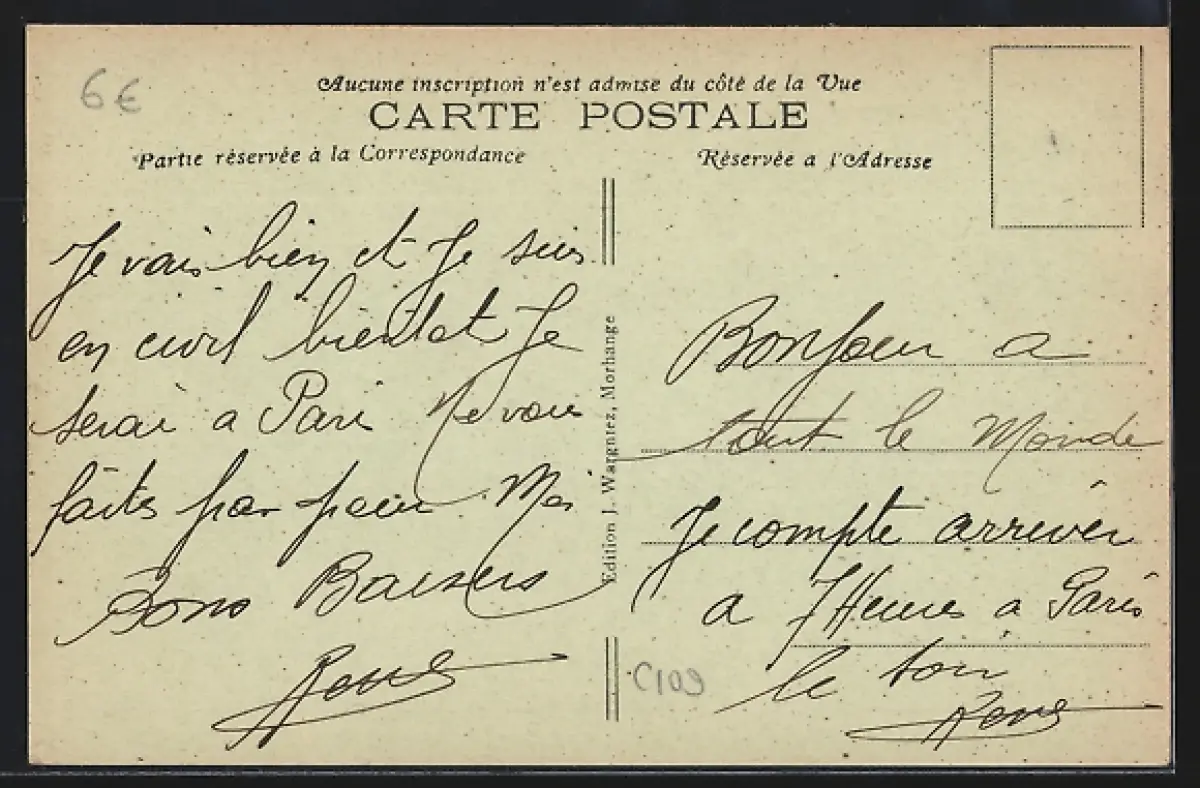 6€
Aucune inscription n'est admise du côté de la Vue
CARTE POSTALE
Partie réservée à la Correspondance
Réservée a l'Adresse
Je vais bien et Je suis
en civil bientot Je
serai a Paris Ne vous
faites pas peur. Mes
Bons Baisers
René
Edition J. Wargniez, Morhange
Bonjour a
tout le Monde
Je compte arriver
a 7 Heures a Paris
le soir
René
C109